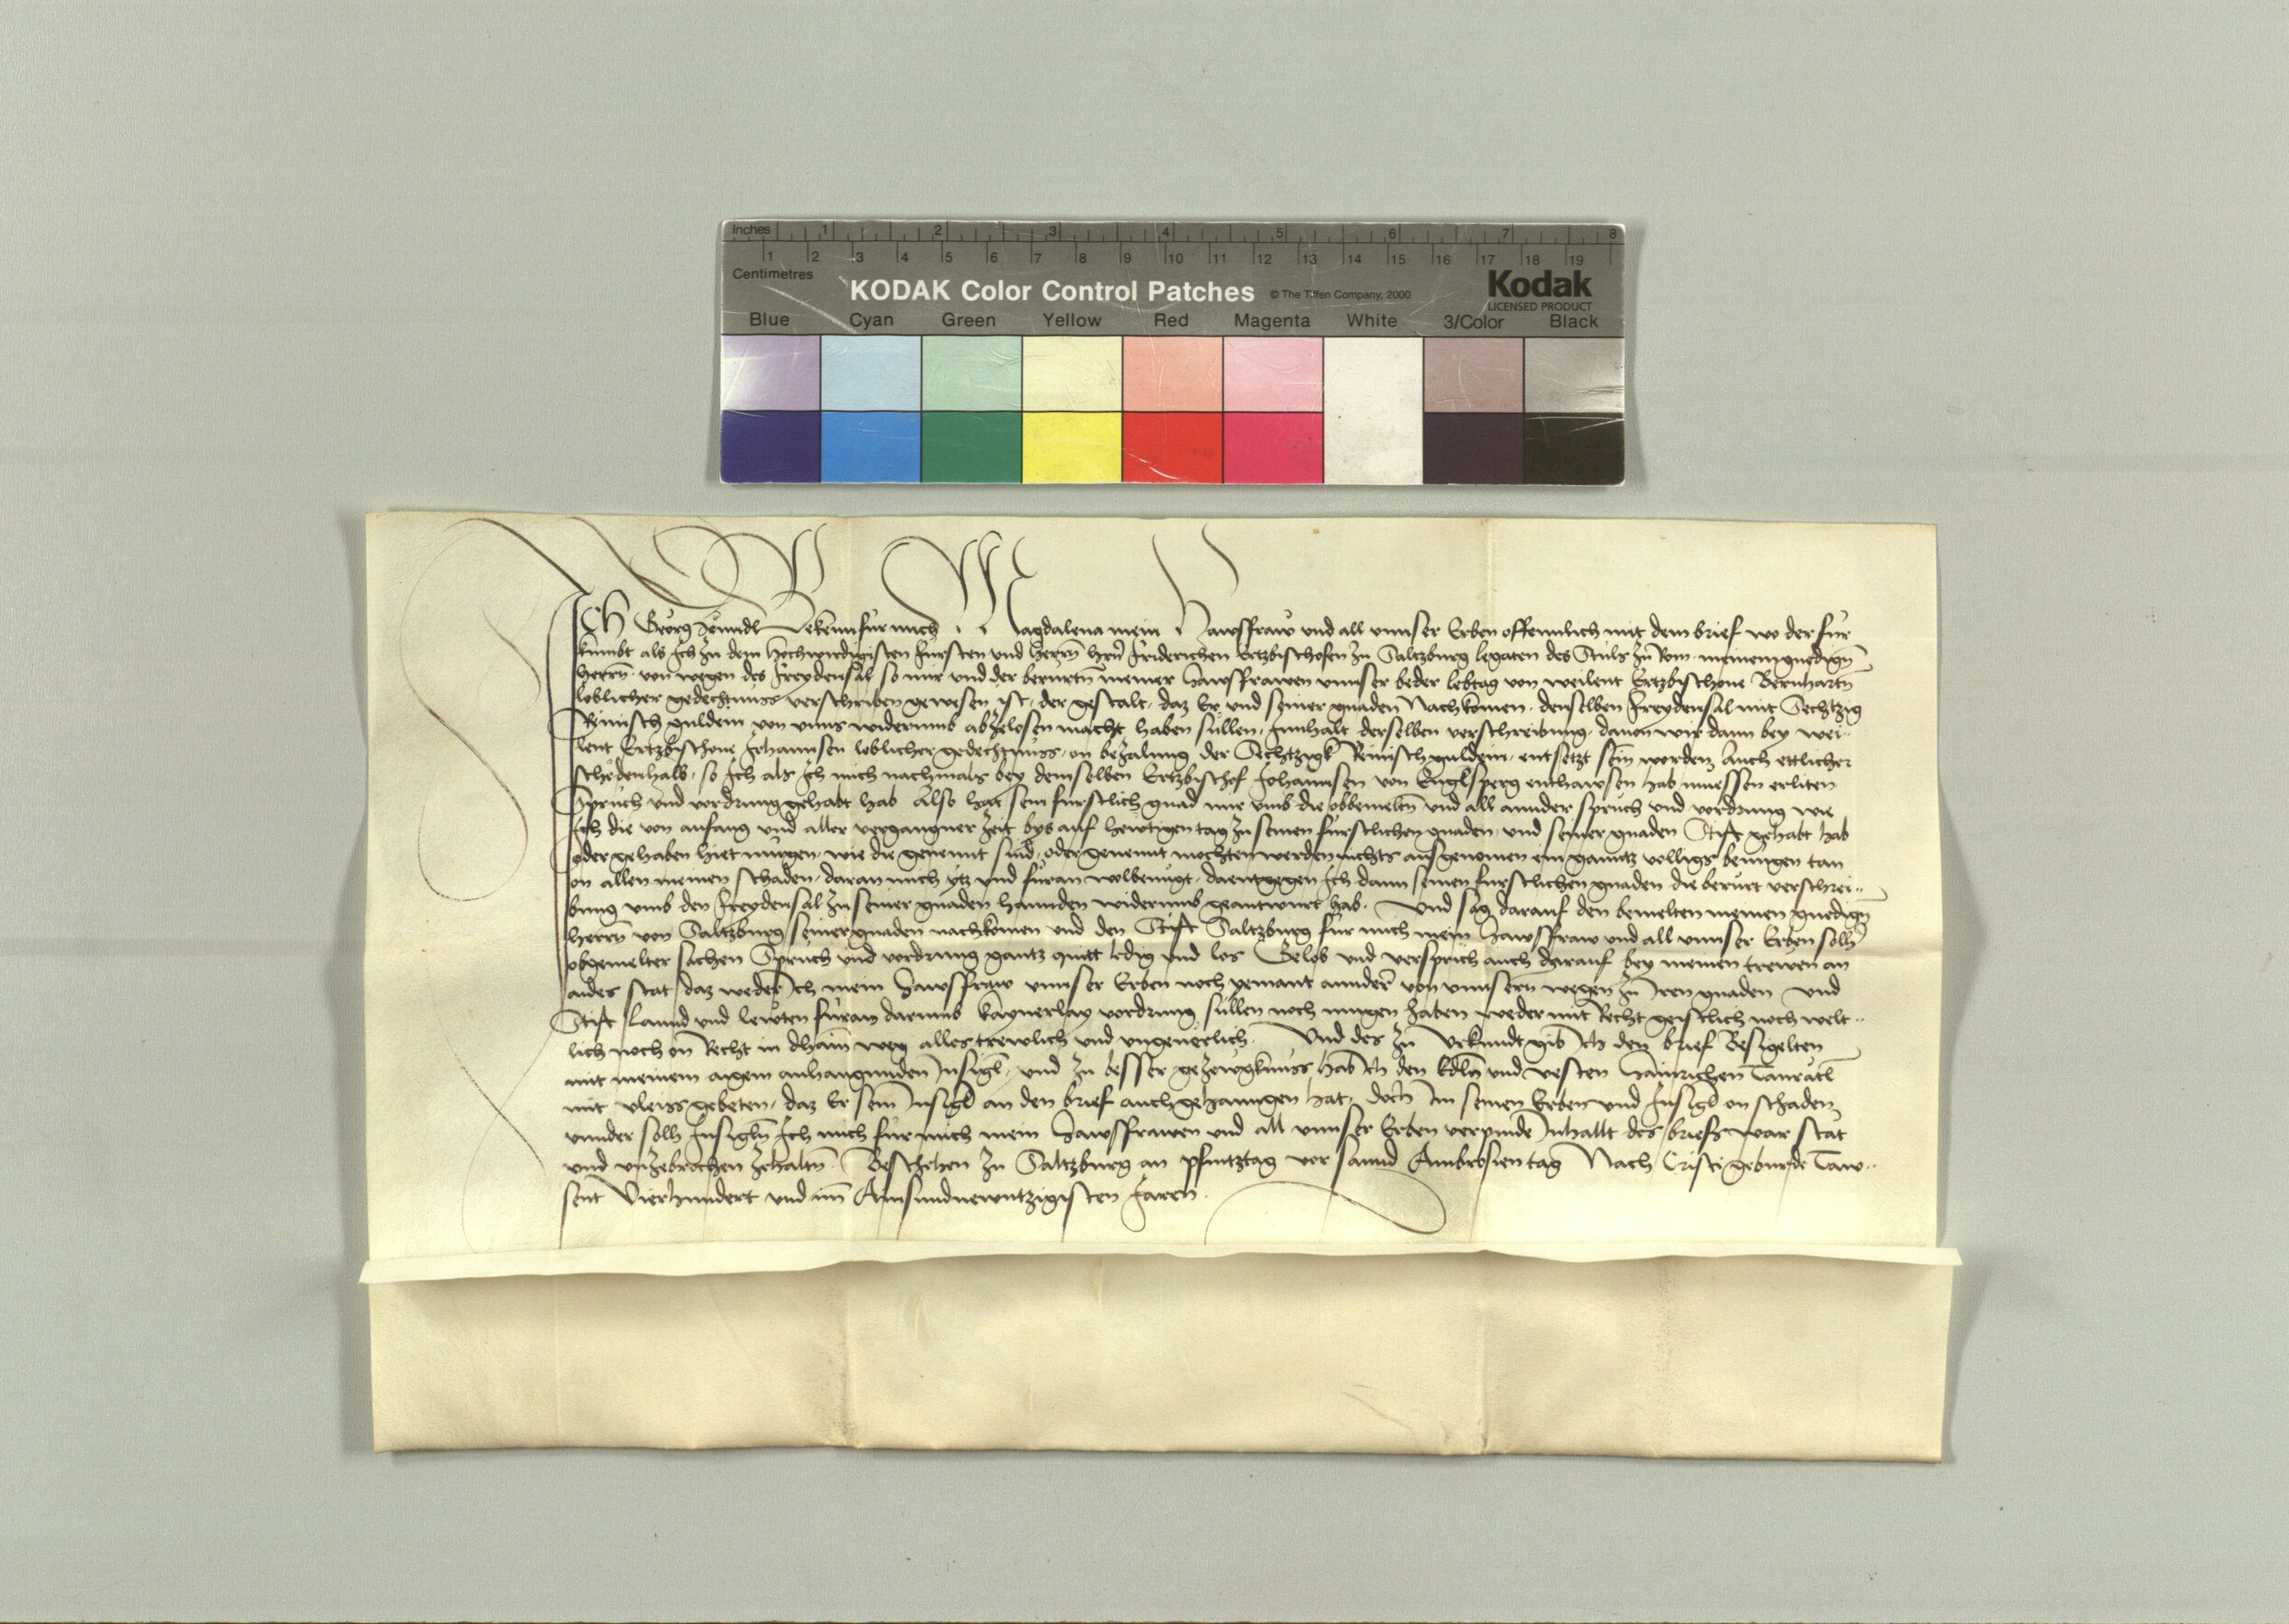 Inches 1 2 3 4 5 6 7 8
1 2 3 4 5 6 7 8 9 10 11 12 13 14 15 16 17 18 19
Centimetres
KODAK Color Control Patches © The Tiffen Company, 2000 Kodak
LICENSED PRODUCT
Blue Cyan Green Yellow Red Magenta White 3/Color Black
Ich Georg Bekenn für mich Magdalena mein Hawsfraw vnd all vnnser Erben offennlich mit dem brief wo der für
kumbt als Ich zu dem Hochwirdigisten fürsten vnd herrn hern Friderichen Ertzbischofen zu Saltzburg legaten des Stuls zu Rom meinem gnedign
herrn von wegen des Freydensal so mir vnd der berürtn meiner Hawsfrawen vnnser beder lebtag von weilent Ertzbischoue Bernhartn
loblicher gedechtnüss verschriben gewesen ist, der gestalt, daz Er vnd seiner gnaden Nachkomen denselben Freydensal mit Sechtzig
Reinisch guldein von vnns widerumb abzelosen macht haben süllen, Innhalt derselben verschreibung, dauon wir dann bey wei¨
lent Ertzbischoue Johannsen loblicher gedechtnüss, on bezalung der Sechtzigk Reinisch guldein, entsetzt sein worden, Auch ettlicher
schedenhalb, so Ich als Ich mich nachmals bey demselben Ertzbischof Johannsen von Englsperg enthawsen hab müessen erliten
Sprüch vnd vordrung gehabt hab Also hat sein fürstlich gnad mir vmb die obbemeltn vnd all annder sprüch vnd vordrung wie
Ich die von anfang vnd aller vergangner zeit bys auf hewtigen tag zu seinen fürstlichen gnaden vnd seiner gnaden Stift gehabt hab
oder gehaben hiet mügen, wie die genennt sind, oder genennt mochten werden nichts ausgenomen ein ganntz volligs benügen tan
on allen meinen schaden, daran mich ytz vnd füran wolbenügt, daentgegen Ich dann seinen fürstlichen gnaden die berürt verschrei¨
bung vmb den Freydensal zu seiner gnaden hannden widerumb geantwurt hab. Vnd sag darauf den bemelten meinen gnedign
herrn von Saltzburg seiner gnaden nachkomen vnd den Stift Saltzburg für mich mein Hawsfraw vnd all vnnser Erben solher
obgemelter sachen Sprüch vnd vordrung gantz quitt ledig vnd los Gelob vnd versprich auch darauf bey meinen trewen an
aides stat, daz weder Ich mein Hawsfraw vnnser Erben noch yemant annder von vnnsern wegen zu Iren gnaden vnd
Stift Lannd vnd lewten füran darumb kaynerlay vordrung süllen noch mügen haben weder mit Recht geistlich noch welt¨
lich noch on Recht in dhain weg alles trewlich vnd vngeuerlich. Vnd des zu Vrkundt gib Ich den brief Besigelten
mit meinem aigem anhangunden Insigl, vnd zu besser gezewgknüss hab Ich den Edln vnd vesten Hainrichen
mit vleiss gebeten, daz Er sein Insigl an den brief auch gehanngen hat, doch Im seinen Erben vnd Insigl on schaden,
vnnder solh Insigln Ich mich für mich mein Hawsfrawen vnd all vnnser Erben verpinde Inhallt des briefs war stät
vnd vnzebrochen zehaltn. Beschehen zu Saltzburg an pfintztag vor sannd Ambrosien tag Nach Cristi geburde Taw¨
sent Vierhundert vnd im Ainsundnewntzigisten Jaren.